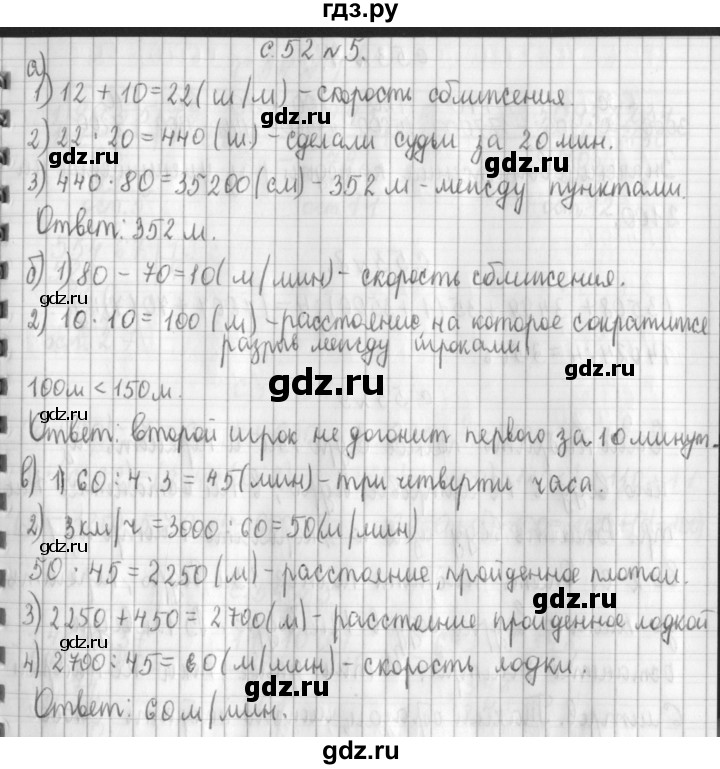 гдз.ру
с. 52 № 5.
а)
1) 12 + 10 = 22 (ш/м) - скорость сближения.
2) 22 · 20 = 440 (ш.) - сделали судьи за 20 мин.
gdz.ru
gdz.ru
3) 440 · 80 = 35200 (см) - 352 м - между пунктами.
gdz.ru
Ответ: 352 м.
б) 1) 80 - 70 = 10 (м/мин) - скорость сближения.
gdz.ru
2) 10 · 10 = 100 (м) - расстояние на которое сократится
разрыв между игроками
gdz.ru
gdz.ru
100 м < 150 м.
gdz.ru
Ответ: второй игрок не догонит первого за 10 минут.
gdz.ru
в) 1) 60 : 4 · 3 = 45 (мин) - три четверти часа.
2) 3 км/ч = 3000 : 60 = 50 (м/мин)
gdz.ru
50 · 45 = 2250 (м) - расстояние, пройденное плотом.
gdz.ru
3) 2250 + 450 = 2700 (м) - расстояние пройденное лодкой
gdz.ru
4) 2700 : 45 = 60 (м/мин) - скорость лодки.
gdz.ru
Ответ: 60 м/мин.
gdz.ru